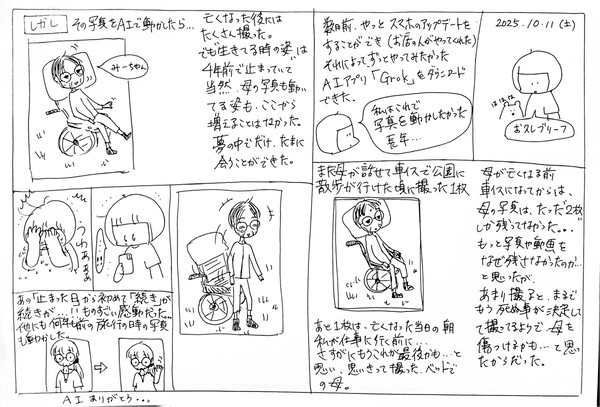 2025.10.11(土)
ははは
お久しブリーフ
数日前、やっと スマホのアップデートを
することができ(お店の人がやってくれた)
それによってずっとやってみたかった
AIアプリ「Grok」をダウンロード
できた。
私はこれで
写真を動かしたかった
長年…
母が亡くなる前
車イスになってからは、
母の写真は、たった2枚
しか残ってなかった…
もっと写真や動画を
なぜ残さなかったのか…
と思ったが、
あまり撮ると、まるで
もう死ぬ事が決定し
て撮るようで、母を
傷つけるかも…て思
たからだった。
まだ母が話せて車イスで公園に
散歩が行けた頃に撮った1枚
あと1枚は、亡くなった当日の朝
私が仕事に行く前に…
さすがにもうこれが最後かも…と
思い、思いきって撮った、ベッドで
の母。
亡くなった後には
たくさん撮った。
でも生きてる時の姿は
4年前で止まっていて
当然、母の写真も動い
てる姿も、ここから
増えることはなかった。
夢の中でだけ、たまに
会うことができた。
しかし
その写真をAIで動かしたら…
みーちゃん
うわぁぁぁ
あの「止まった日」から初めて「続き」が
続きが…!!ものすごい感動だった…
他にも何年も前の旅行の時の写真
も動かした。
AIありがとう…